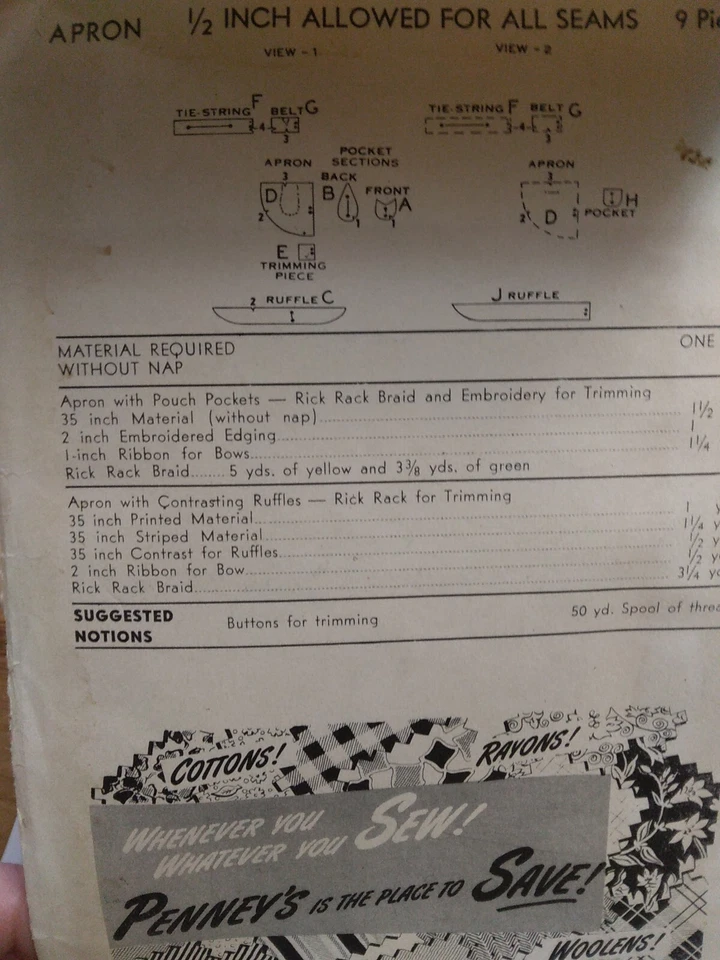 APRON ½ INCH ALLOWED FOR ALL SEAMS 9 Pie
VIEW - 1
VIEW - 2
TIE-STRING F BELT G
4
3
TIE-STRING F BELT G
3 4
3
APRON
3
D
2
POCKET
SECTIONS
BACK
B
1
FRONT
A
1
E
TRIMMING
PIECE
APRON
3
D
2
2
H
POCKET
2 RUFFLE C
J RUFFLE
MATERIAL REQUIRED
WITHOUT NAP
ONE
Apron with Pouch Pockets — Rick Rack Braid and Embroidery for Trimming
35 inch Material (without nap) 1½
2 inch Embroidered Edging 1
1-inch Ribbon for Bows 1¼
Rick Rack Braid 5 yds. of yellow and 3⅜ yds. of green
Apron with Contrasting Ruffles — Rick Rack for Trimming
35 inch Printed Material 1 y
35 inch Striped Material 1¼ y
35 inch Contrast for Ruffles ½ y
2 inch Ribbon for Bow ½ y
Rick Rack Braid 3¼ y
SUGGESTED
NOTIONS
Buttons for trimming
50 yd. Spool of threa
COTTONS!
RAYONS!
WHENEVER YOU
WHATEVER YOU SEW!
PENNEY'S IS THE PLACE TO SAVE!
WOOLENS!